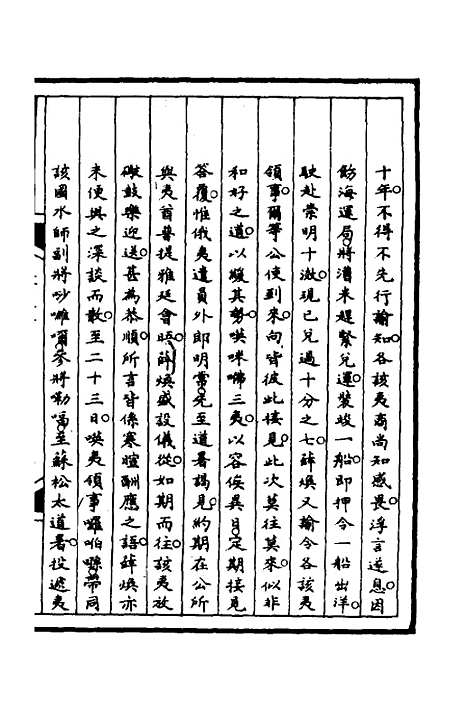 十年。不得不先行諭知。各該夷商尚知感畏。浮言遂息。因
飭海運局。將漕米趕緊兌運。裝竣一船。即押令一船出洋。
駛赴崇明十滧。現已兌過十分之七。薛煥又諭令各該夷
領事。爾等公使到來。向皆彼此接見。此次莫往莫來。似非
和好之道。以緩其勢。㗆咪㗐三夷。以容俟異日定期接見
答覆。惟俄夷遣員外郎明常。先至道署謁見。約期在公所
與夷酋普提雅廷會晤。薛煥盛設儀從。如期而往。該夷放
礮鼓樂迎送。甚為恭順。所言皆係寒暄酬應之語。薛煥亦
未便與之深談而散。至二十三日。㗆夷領事囉啪遜。帶同
該國水師副將吵囉嘓。參將勒嗝。至蘇松太道署。投遞夷